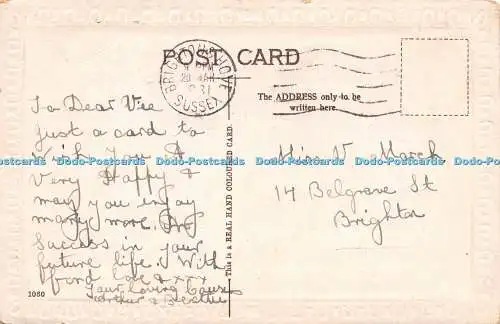 POST CARD
BRIGHTON & HOVE
SUSSEX
The ADDRESS only to be
written here.
To Dear Vie
Just a card to
Wish you A
Very Happy &
may you enjoy
many more. And
Success in your
future life. With
fond love & xxx
Your loving Cousins
Arthur & Beattie
This is a REAL HAND COLOURED CARD.
Miss V. Marsh
14 Belgrave St
Brighton
1060
Dodo-Postcards Dodo-Postcards Dodo-Postcards Dodo-Postcards Dodo-Postcards Dodo-Postcards